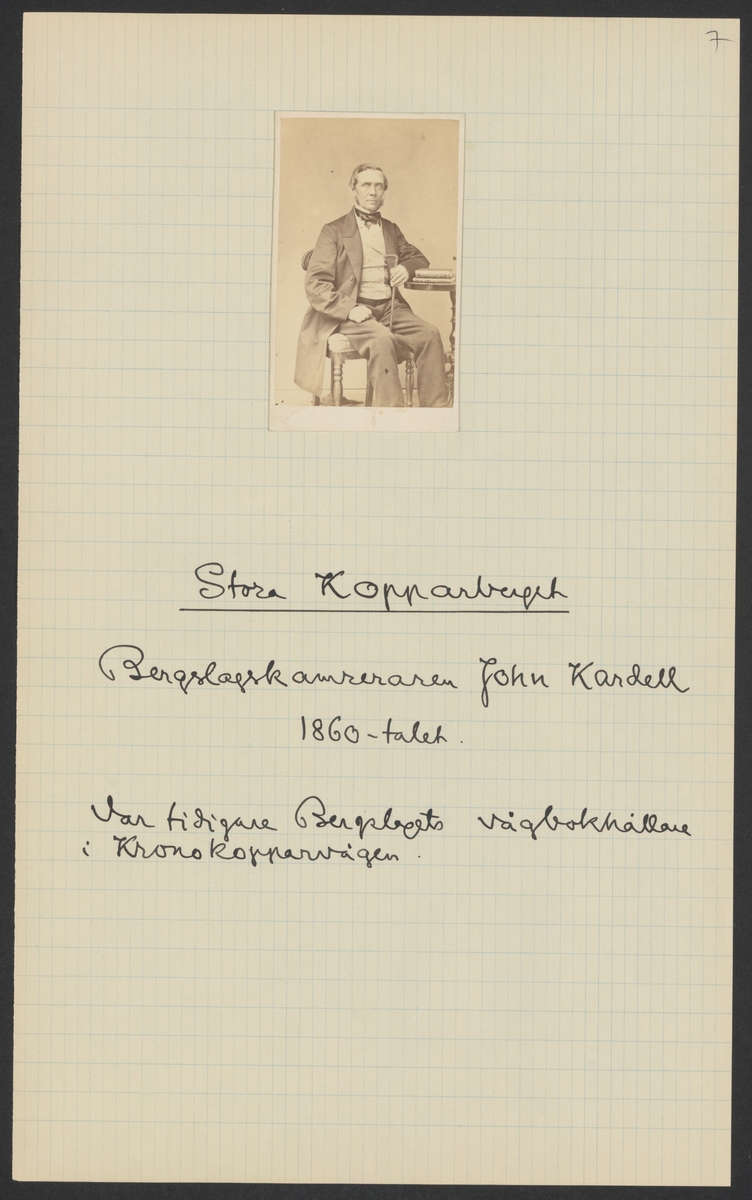 7
Stora Kopparberget
Bergslagskamreraren John Kardell
1860-talet.
Var tidigare Bergslagets vågbokhållare
i Kronokopparvågen.